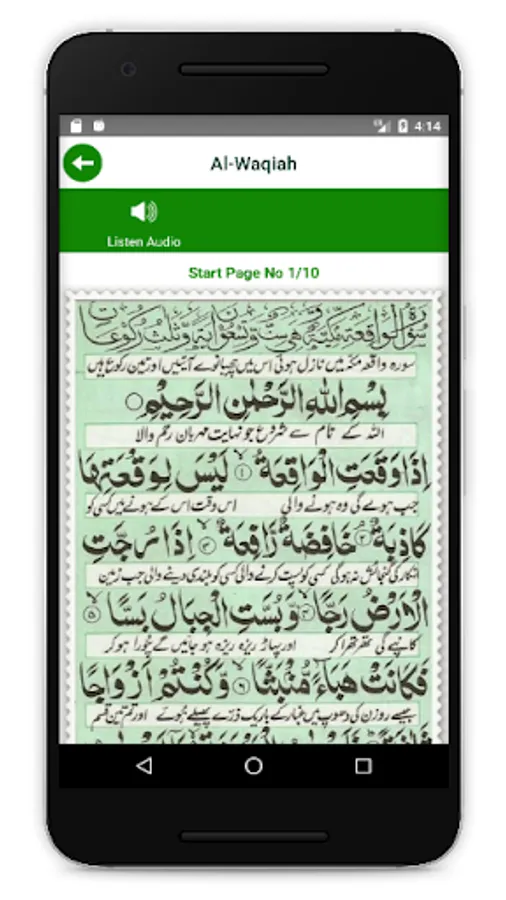 4:14
Al-Waqiah
Listen Audio
Start Page No 1/10
سورہ واقعہ مکہ میں نازل ہوئی اس میں چھیانوے آیتیں اور تین رکوع ہیں
بِسْمِ اللهِ الرَّحْمٰنِ الرَّحِيْمِ
اللہ کے نام سے شروع جو نہایت مہربان رحم والا
اِذَا وَقَعَتِ الْوَاقِعَةُ ۙ﴿۱﴾ لَيْسَ لِوَقْعَتِهَا
جب ہولے گی وہ ہونے والی اس وقت اس کے ہونے میں کسی کو
كَاذِبَةٌ ۘ﴿۲﴾ خَافِضَةٌ رَّافِعَةٌ ۙ﴿۳﴾ اِذَا رُجَّتِ
انکار کی گنجائش نہ ہوگی کسی کو پست کرنے والی کسی کو بلندی دینے والی جب زمین
الْاَرْضُ رَجًّا ۙ﴿۴﴾ وَّبُسَّتِ الْجِبَالُ بَسًّا ۙ﴿۵﴾
کانپے گی تھرتھرا کر اور پہاڑ ریزہ ریزہ ہو جائیں گے چُورا ہوکر
فَكَانَتْ هَبَآءً مُّنْۢبَثًّا ۙ﴿۶﴾ وَّكُنْتُمْ اَزْوَاجًا
جیسے روزن کی دھوپ میں غبار کے باریک ذرّے پھیلے ہوئے اور تم تین قسم